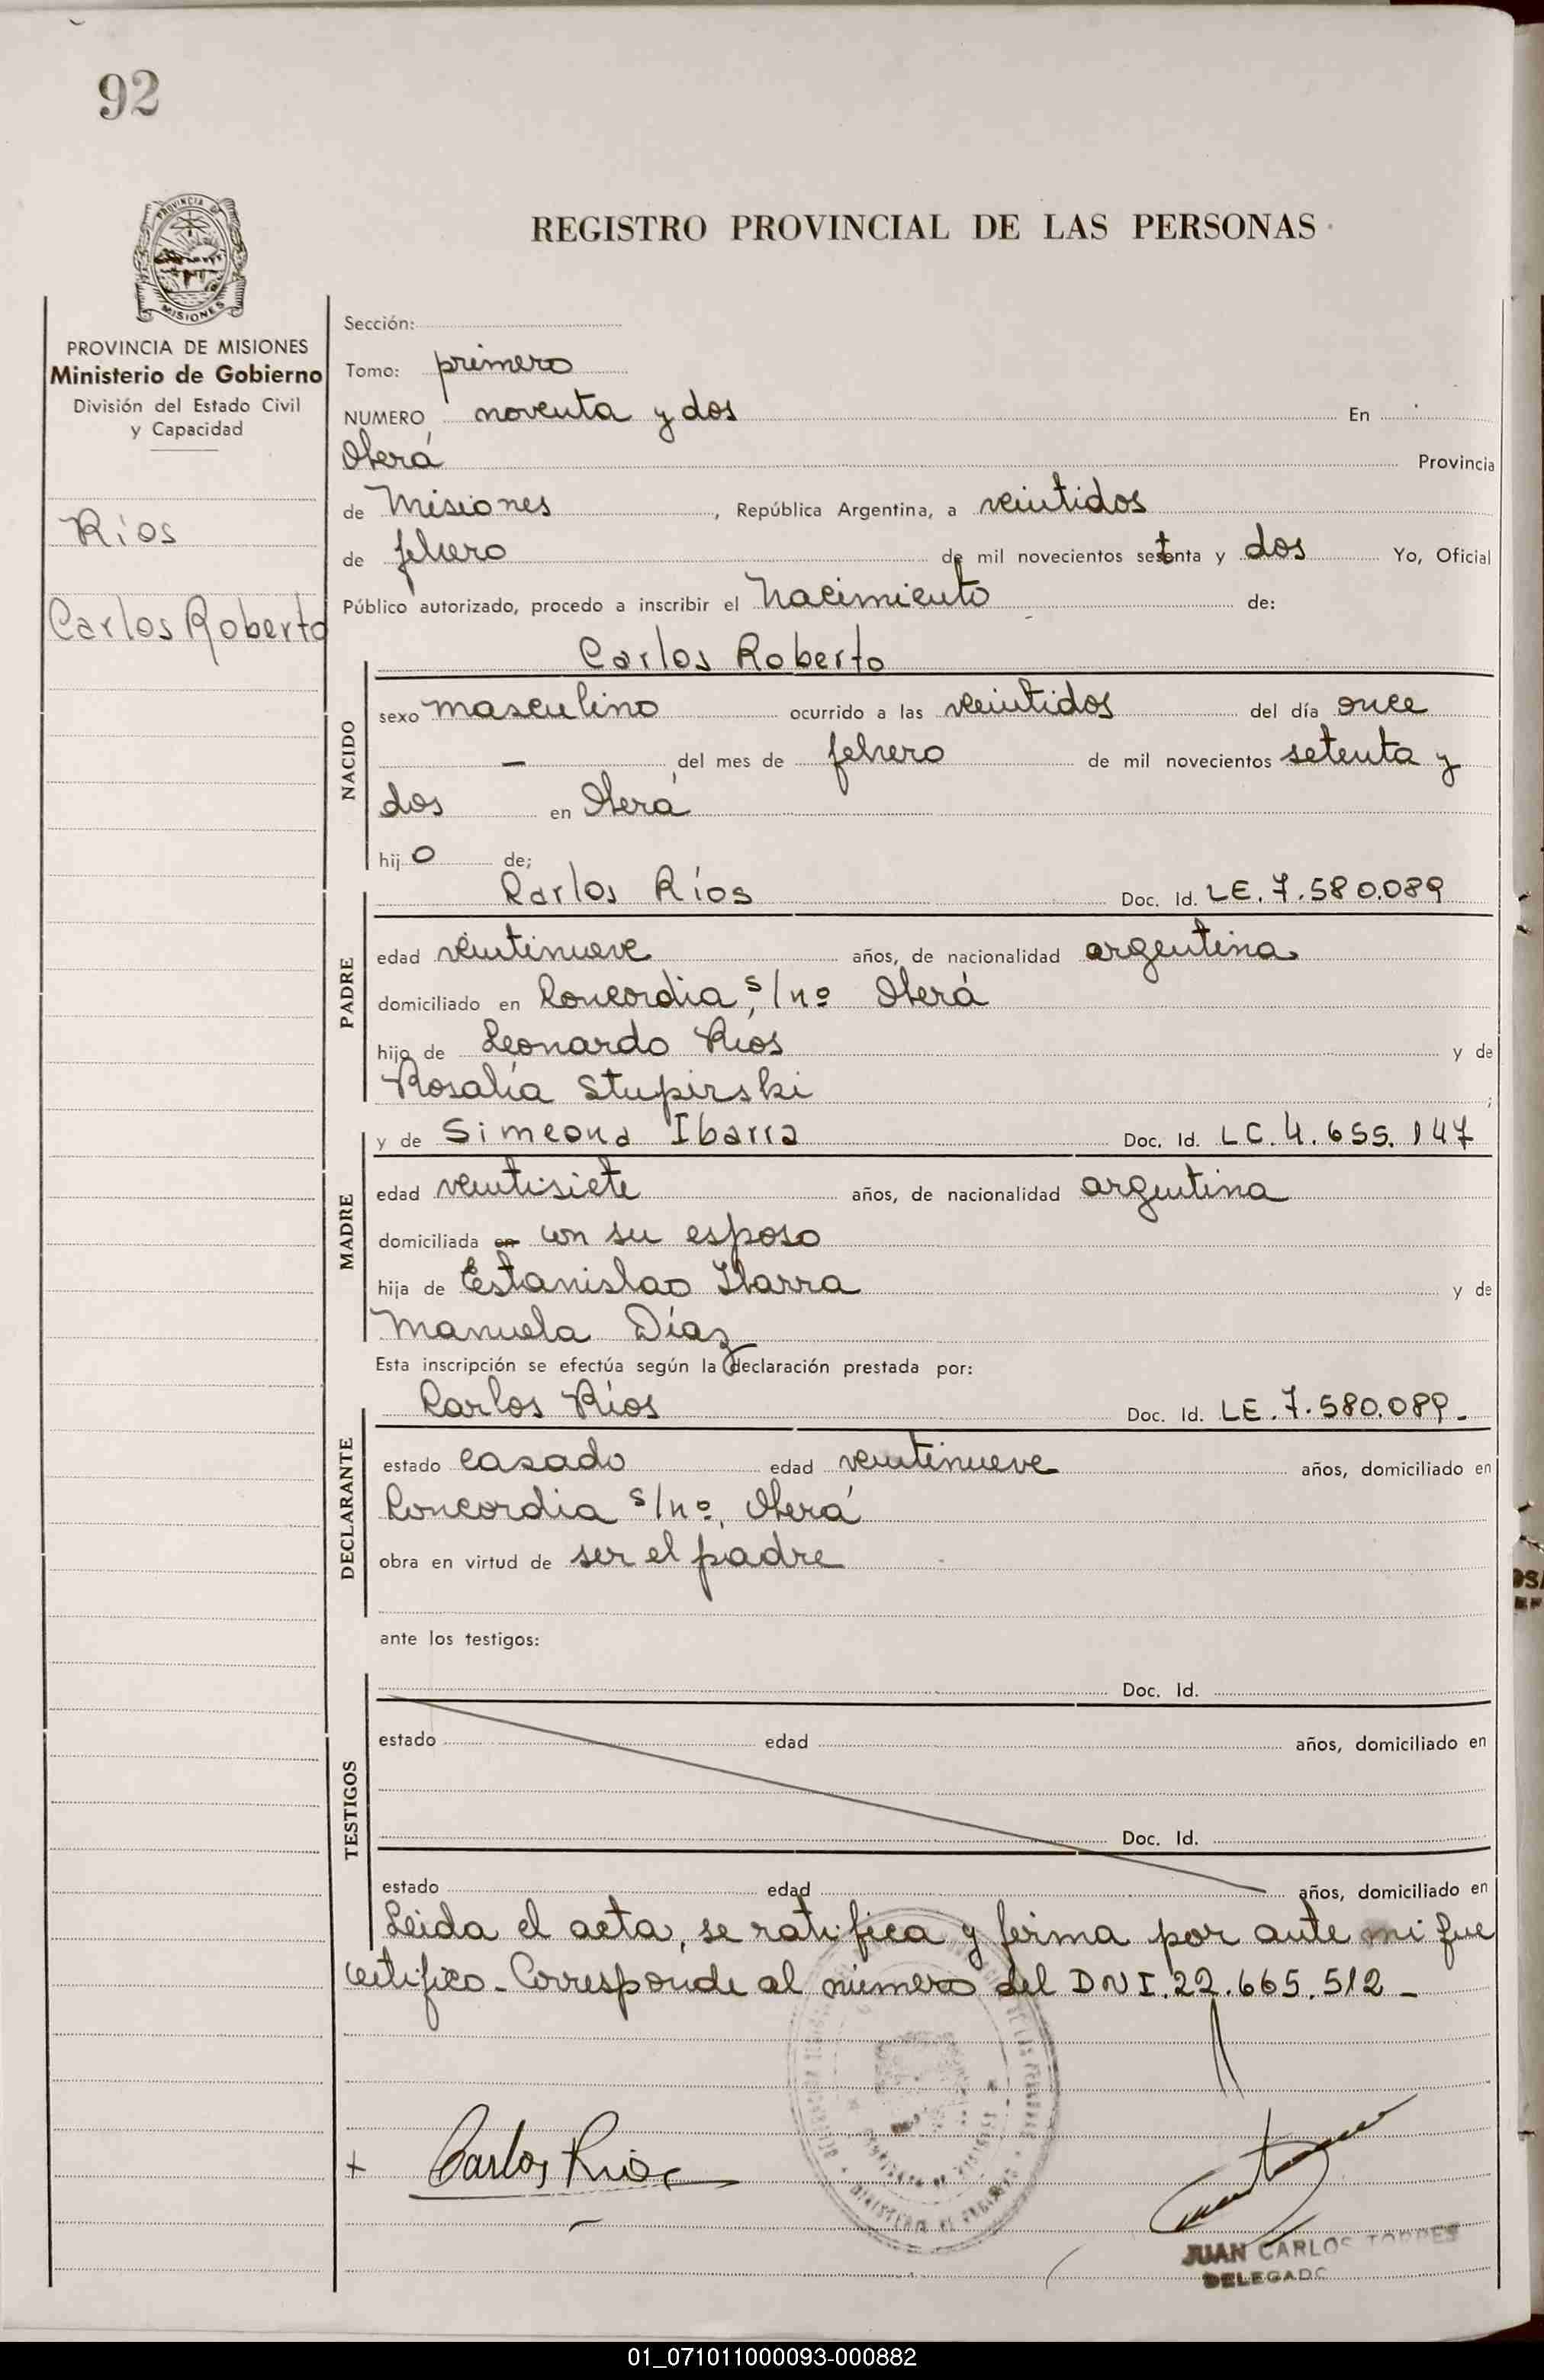 92
REGISTRO PROVINCIAL DE LAS PERSONAS
PROVINCIA DE MISIONES
Ministerio de Gobierno
División del Estado Civil
y Capacidad
Ríos
Carlos Roberto
Sección:
Tomo: primero
NUMERO noventa y dos En
Oberá Provincia
de Misiones, República Argentina, a veintidos
de febrero de mil novecientos setenta y dos Yo, Oficial
Público autorizado, procedo a inscribir el Nacimiento de:
Carlos Roberto
NACIDO
sexo masculino ocurrido a las veintidos del día once
— del mes de febrero de mil novecientos setenta y
dos en Oberá
hijo de;
PADRE
Carlos Ríos Doc. Id. LE. 7.580.089
edad veintinueve años, de nacionalidad argentina
domiciliado en Concordia, s/nº Oberá
hijo de Leonardo Ríos y de
Rosalía Stupirski;
MADRE
y de Simeona Ibarra Doc. Id. LC. 4.655.147
edad veintisiete años, de nacionalidad argentina
domiciliada en con su esposo
hija de Estanislao Ibarra y de
Manuela Díaz
Esta inscripción se efectúa según la declaración prestada por:
DECLARANTE
Carlos Ríos Doc. Id. LE. 7.580.089.-
estado casado edad veintinueve años, domiciliado en
Concordia s/nº, Oberá
obra en virtud de ser el padre
ante los testigos:
TESTIGOS
Doc. Id.
estado edad años, domiciliado en
Doc. Id.
estado edad años, domiciliado en
Leida el acta, se ratifica y firma por ante mi que
certifico. Corresponde al número del DNI. 22.665.512 -
+ Carlos Rios
JUAN CARLOS TORRES
DELEGADO
01_071011000093-000882